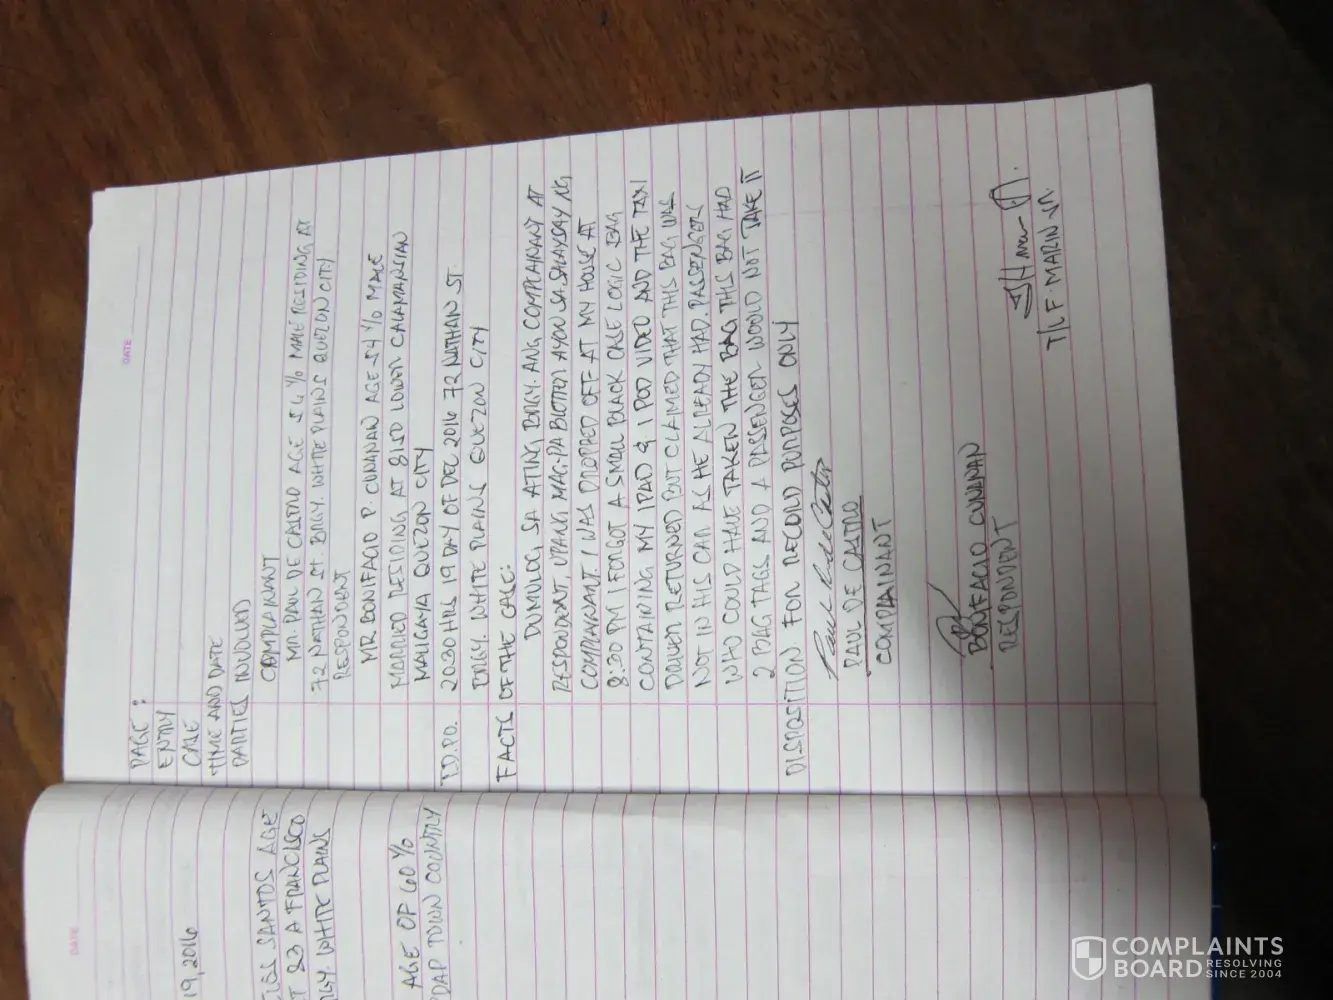 DATE
PAGE :
ENTRY
CASE
TIME AND DATE
PARTIES INVOLVED
COMPLAINANT
MR. PAUL DE CASTRO AGE 54 % MALE RESIDING AT
72 NATHAN ST. BRGY. WHITE PLAINS QUEZON CITY
RESPONDENT
MR BONIFACIO P. CUNANAN AGE 54 % MALE
MARRIED RESIDING AT 8150 LOWER CALAMANSIAN
MALIGAYA QUEZON CITY
T.D.P.O. 2030 HRS 19 DAY OF DEC 2016 72 NATHAN ST.
BRGY. WHITE PLAINS QUEZON CITY
FACTS OF THE CASE:
DUMULOG SA ATING BRGY. ANG COMPLAINANT AT
RESPONDENT, UPANG MAG-PA BLOTTER AYON SA SALAYSAY NG
COMPLAINANT. I WAS DROPPED OFF AT MY HOUSE AT
8:30 PM I FORGOT A SMALL BLACK CASE LOGIC BAG
CONTAINING MY IPAD & IPOD VIDEO AND THE TAXI
DRIVER RETURNED BUT CLAIMED THAT THIS BAG WAS
NOT IN HIS CAR AS HE ALREADY HAD PASSENGERS
WHO COULD HAVE TAKEN THE BAG THIS BAG HAD
2 BAG TAGS AND A PASSENGER WOULD NOT TAKE IT
DISPOSITION FOR RECORD PURPOSES ONLY
PAUL DE CASTRO
COMPLAINANT
BONIFACIO CUNANAN
RESPONDENT
T/LF MARLIN JR.
DATE
19, 2016
SANTOS AGE
23 A FRANCISCO
WHITE PLAINS
AGE OF 60 %
TOWN COUNTRY
COMPLAINTS
BOARD RESOLVING
SINCE 2004